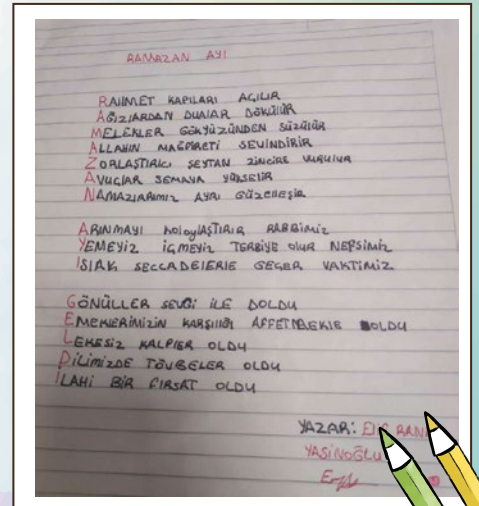 RAMAZAN AYI
RAHMET KAPILARI AÇILIR
AĞIZLARDAN DUALAR DÖKÜLÜR
MELEKLER GÖKYÜZÜNDEN SÜZÜLÜR
ALLAHIN MAĞFİRETİ SEVİNDİRİR
ZORLAŞTIRICI ŞEYTAN ZİNCİRE VURULUR
AVUÇLAR SEMAYA YÜKSELİR
NAMAZLARIMIZ AYRI GÜZELLEŞİR
ARINMAYI KOLAYLAŞTIRIR RABBİMİZ
YEMEYİZ İÇMEYİZ TERBİYE OLUR NEFSİMİZ
ISLAK SECCADELERLE GEÇER VAKTİMİZ
GÖNÜLLER SEVGİ İLE DOLDU
EMEKLERİMİZİN KARŞILIĞI AFFETMEKLE OLDU
LEKESİZ KALPLER OLDU
DİLİMİZDE TÖVBELER OLDU
İLAHİ BİR FIRSAT OLDU
YAZAR: ELİF
YASİNOĞLU